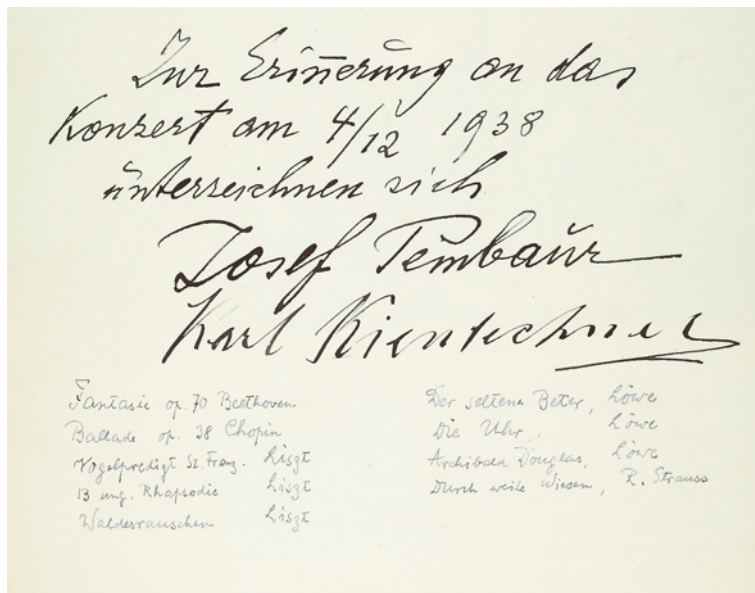 Zur Erin̄erung an das
Konzert am 4/12 1938
unterzeichnen sich
Josef Pembaur
Karl Kientechner
Fantasie op. 70 Beethoven
Ballade op. 38 Chopin
Vogelpredigt St. Franz. Liszt
13 ung. Rhapsodie Liszt
Waldesrauschen Liszt
Der seltene Beter, Löwe
Die Uhr, Löwe
Archibald Douglas, Löwe
Durch weite Wiesen, R. Strauss